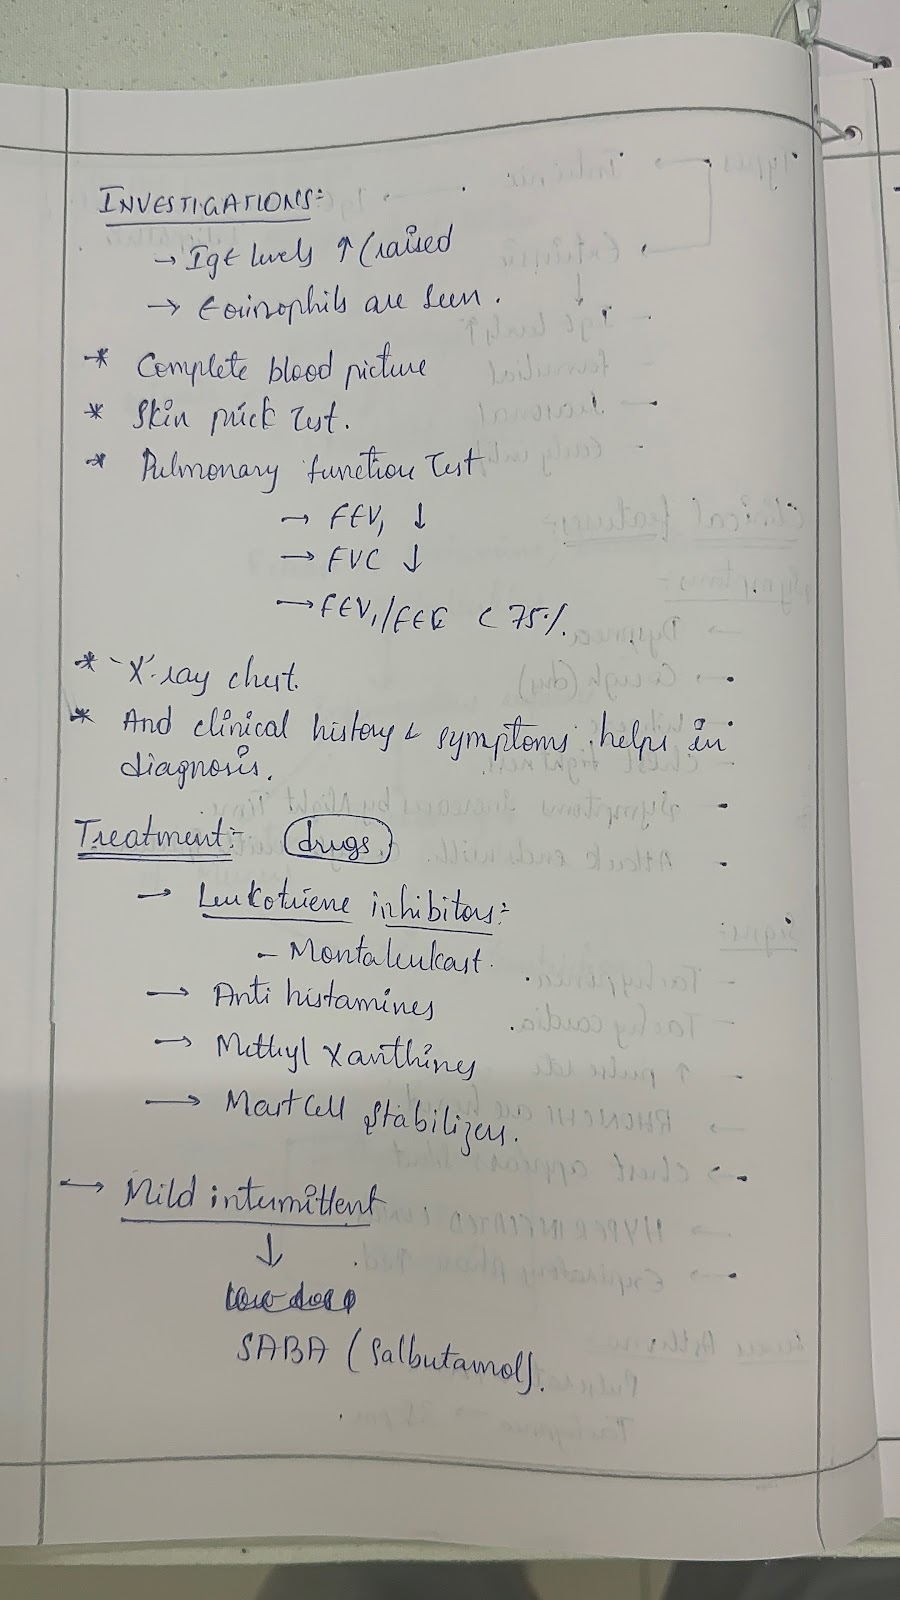 INVESTIGATIONS:-
→ IgE levels ↑ (raised
→ Eosinophils are seen.
* Complete blood picture
* Skin prick Test.
* Pulmonary function Test
→ FEV₁ ↓
→ FVC ↓
→ FEV₁/FEE < 75%.
* X-ray chest.
* And clinical history & symptoms helps in
diagnosis.
Treatment:- (drugs)
→ Leukotriene inhibitors:-
- Montaleukast.
→ Anti histamines
→ Methyl Xanthines
→ Mast Cell Stabilizers.
→ Mild intermittent
↓
SABA (Salbutamol).